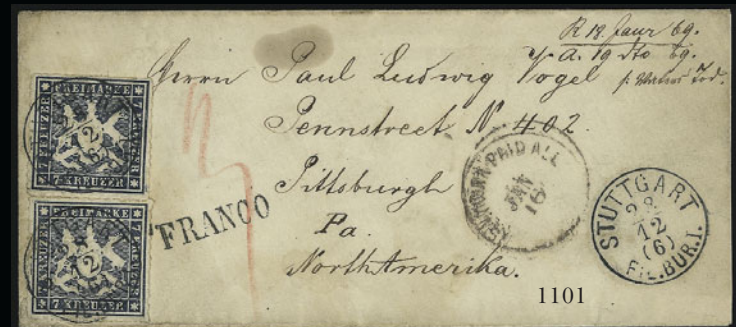 R 18. Janr 69.
A. 19 dto 69.
Herrn Paul Ludwig Vogel
Pennstreet N. 402
Pittsburgh
Pa.
North Amerika.
FREIMARKE
7 KREUZER
7 KREUZER
7 KREUZER
12
FREIMARKE
7 KREUZER
7 KREUZER
7 KREUZER
12
FRANCO
NEW YORK PAID ALL
JAN
16
STUTTGART
28
12
(6)
FIL.BUR.I.
1101